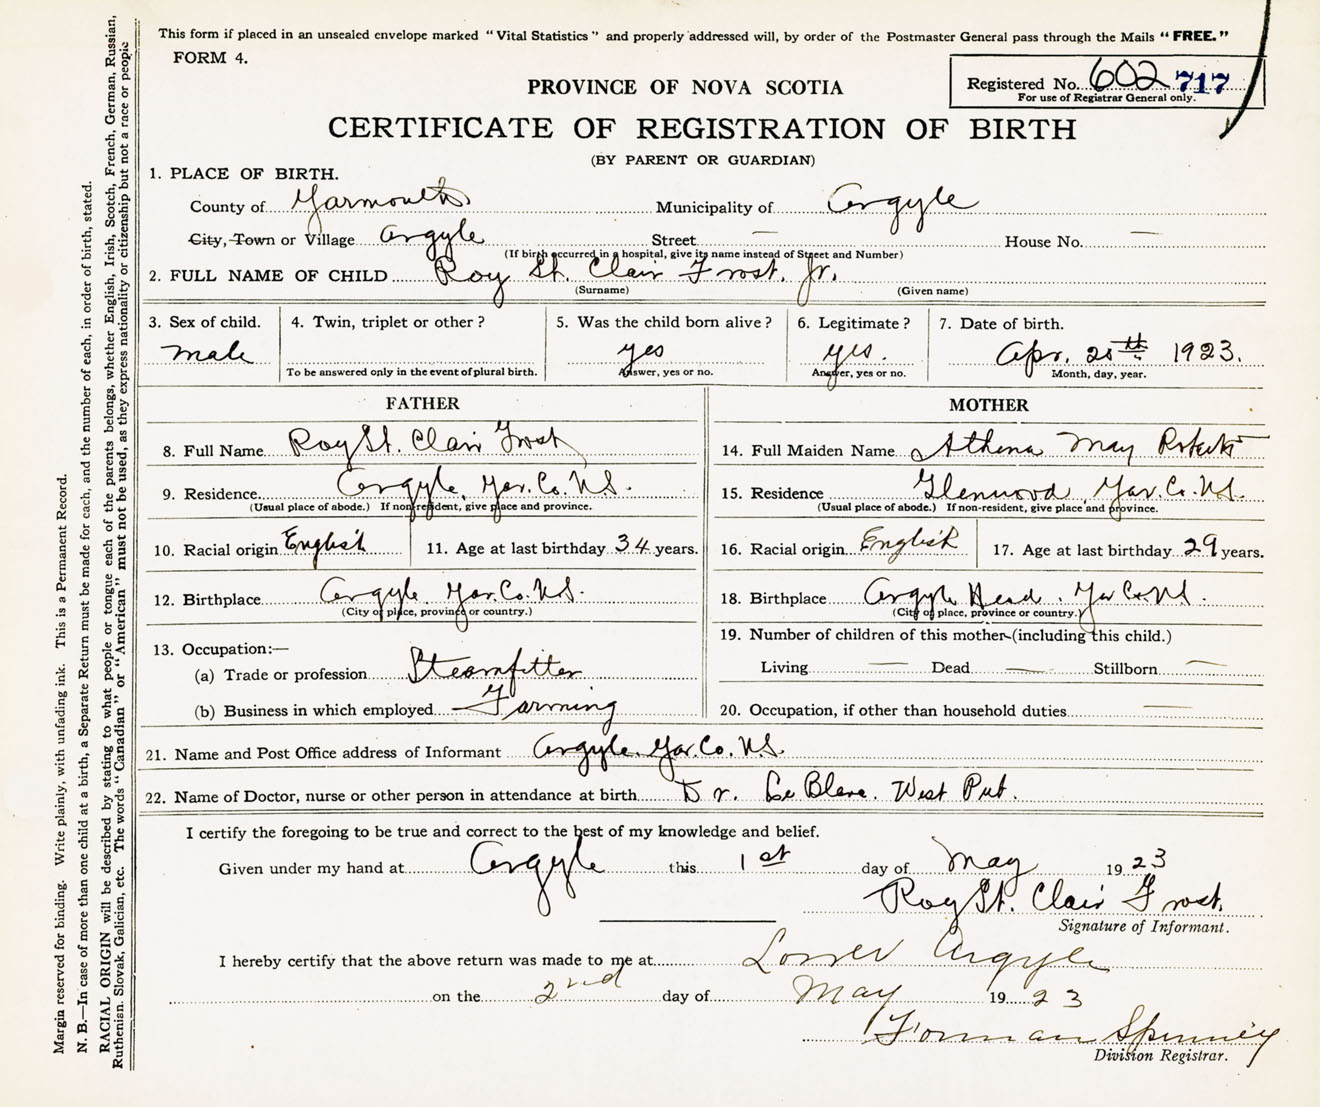 This form if placed in an unsealed envelope marked "Vital Statistics" and properly addressed will, by order of the Postmaster General pass through the Mails "FREE."
FORM 4.
Registered No. 602 717
For use of Registrar General only.
PROVINCE OF NOVA SCOTIA
CERTIFICATE OF REGISTRATION OF BIRTH
(BY PARENT OR GUARDIAN)
1. PLACE OF BIRTH.
County of Yarmouth Municipality of Argyle
City, Town or Village Argyle Street — House No. —
(If birth occurred in a hospital, give its name instead of Street and Number)
2. FULL NAME OF CHILD Roy St. Clair Frost. Jr.
(Surname) (Given name)
3. Sex of child. 4. Twin, triplet or other? 5. Was the child born alive? 6. Legitimate? 7. Date of birth.
male yes yes. Apr. 20th 1923.
To be answered only in the event of plural birth. Answer, yes or no. Answer, yes or no. Month, day, year.
FATHER MOTHER
8. Full Name Roy St. Clair Frost 14. Full Maiden Name Athena May
9. Residence Argyle, Yar. Co. N.S. 15. Residence Glenwood, Yar. Co. N.S.
(Usual place of abode.) If non-resident, give place and province. (Usual place of abode.) If non-resident, give place and province.
10. Racial origin English 11. Age at last birthday 34 years. 16. Racial origin English 17. Age at last birthday 29 years.
12. Birthplace Argyle Yar. Co. N.S. 18. Birthplace Argyle Head. Yar Co. N.S.
(City or place, province or country.) (City or place, province or country.)
13. Occupation:— 19. Number of children of this mother (including this child.)
(a) Trade or profession Steamfitter Living — Dead — Stillborn —
(b) Business in which employed Farming 20. Occupation, if other than household duties —
21. Name and Post Office address of Informant Argyle. Yar. Co. N.S.
22. Name of Doctor, nurse or other person in attendance at birth Dr. Le Blanc. West Pub.
I certify the foregoing to be true and correct to the best of my knowledge and belief.
Given under my hand at Argyle this 1st day of May 1923
Roy St. Clair Frost.
Signature of Informant.
I hereby certify that the above return was made to me at Lower Argyle
on the 2nd day of May 1923
Forman Spinney
Division Registrar.
Margin reserved for binding. Write plainly, with unfading ink. This is a Permanent Record.
N. B.—In case of more than one child at a birth, a Separate Return must be made for each, and the number of each, in order of birth, stated.
RACIAL ORIGIN will be described by stating to what people or tongue each of the parents belongs, whether English, Irish, Scotch, French, German, Russian,
Ruthenian, Slovak, Galician, etc. The words "Canadian" or "American" must not be used, as they express nationality or citizenship but not a race or people